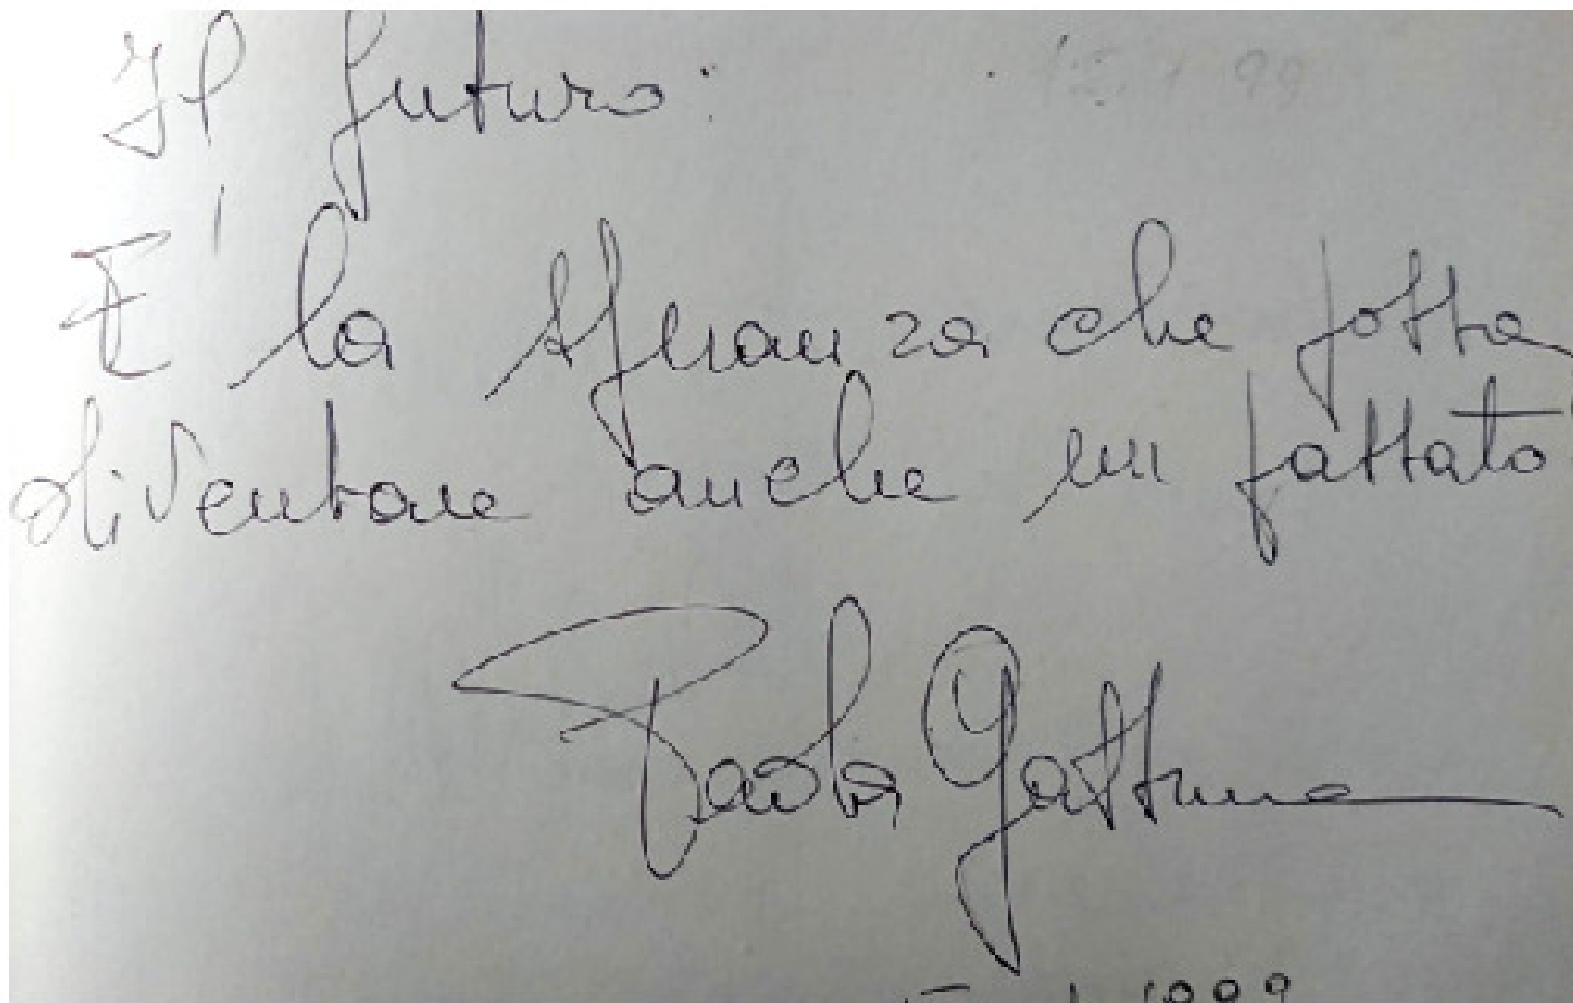 Il futuro:
E' la speranza che possa
diventare anche un passato
Paola Gassman
1999